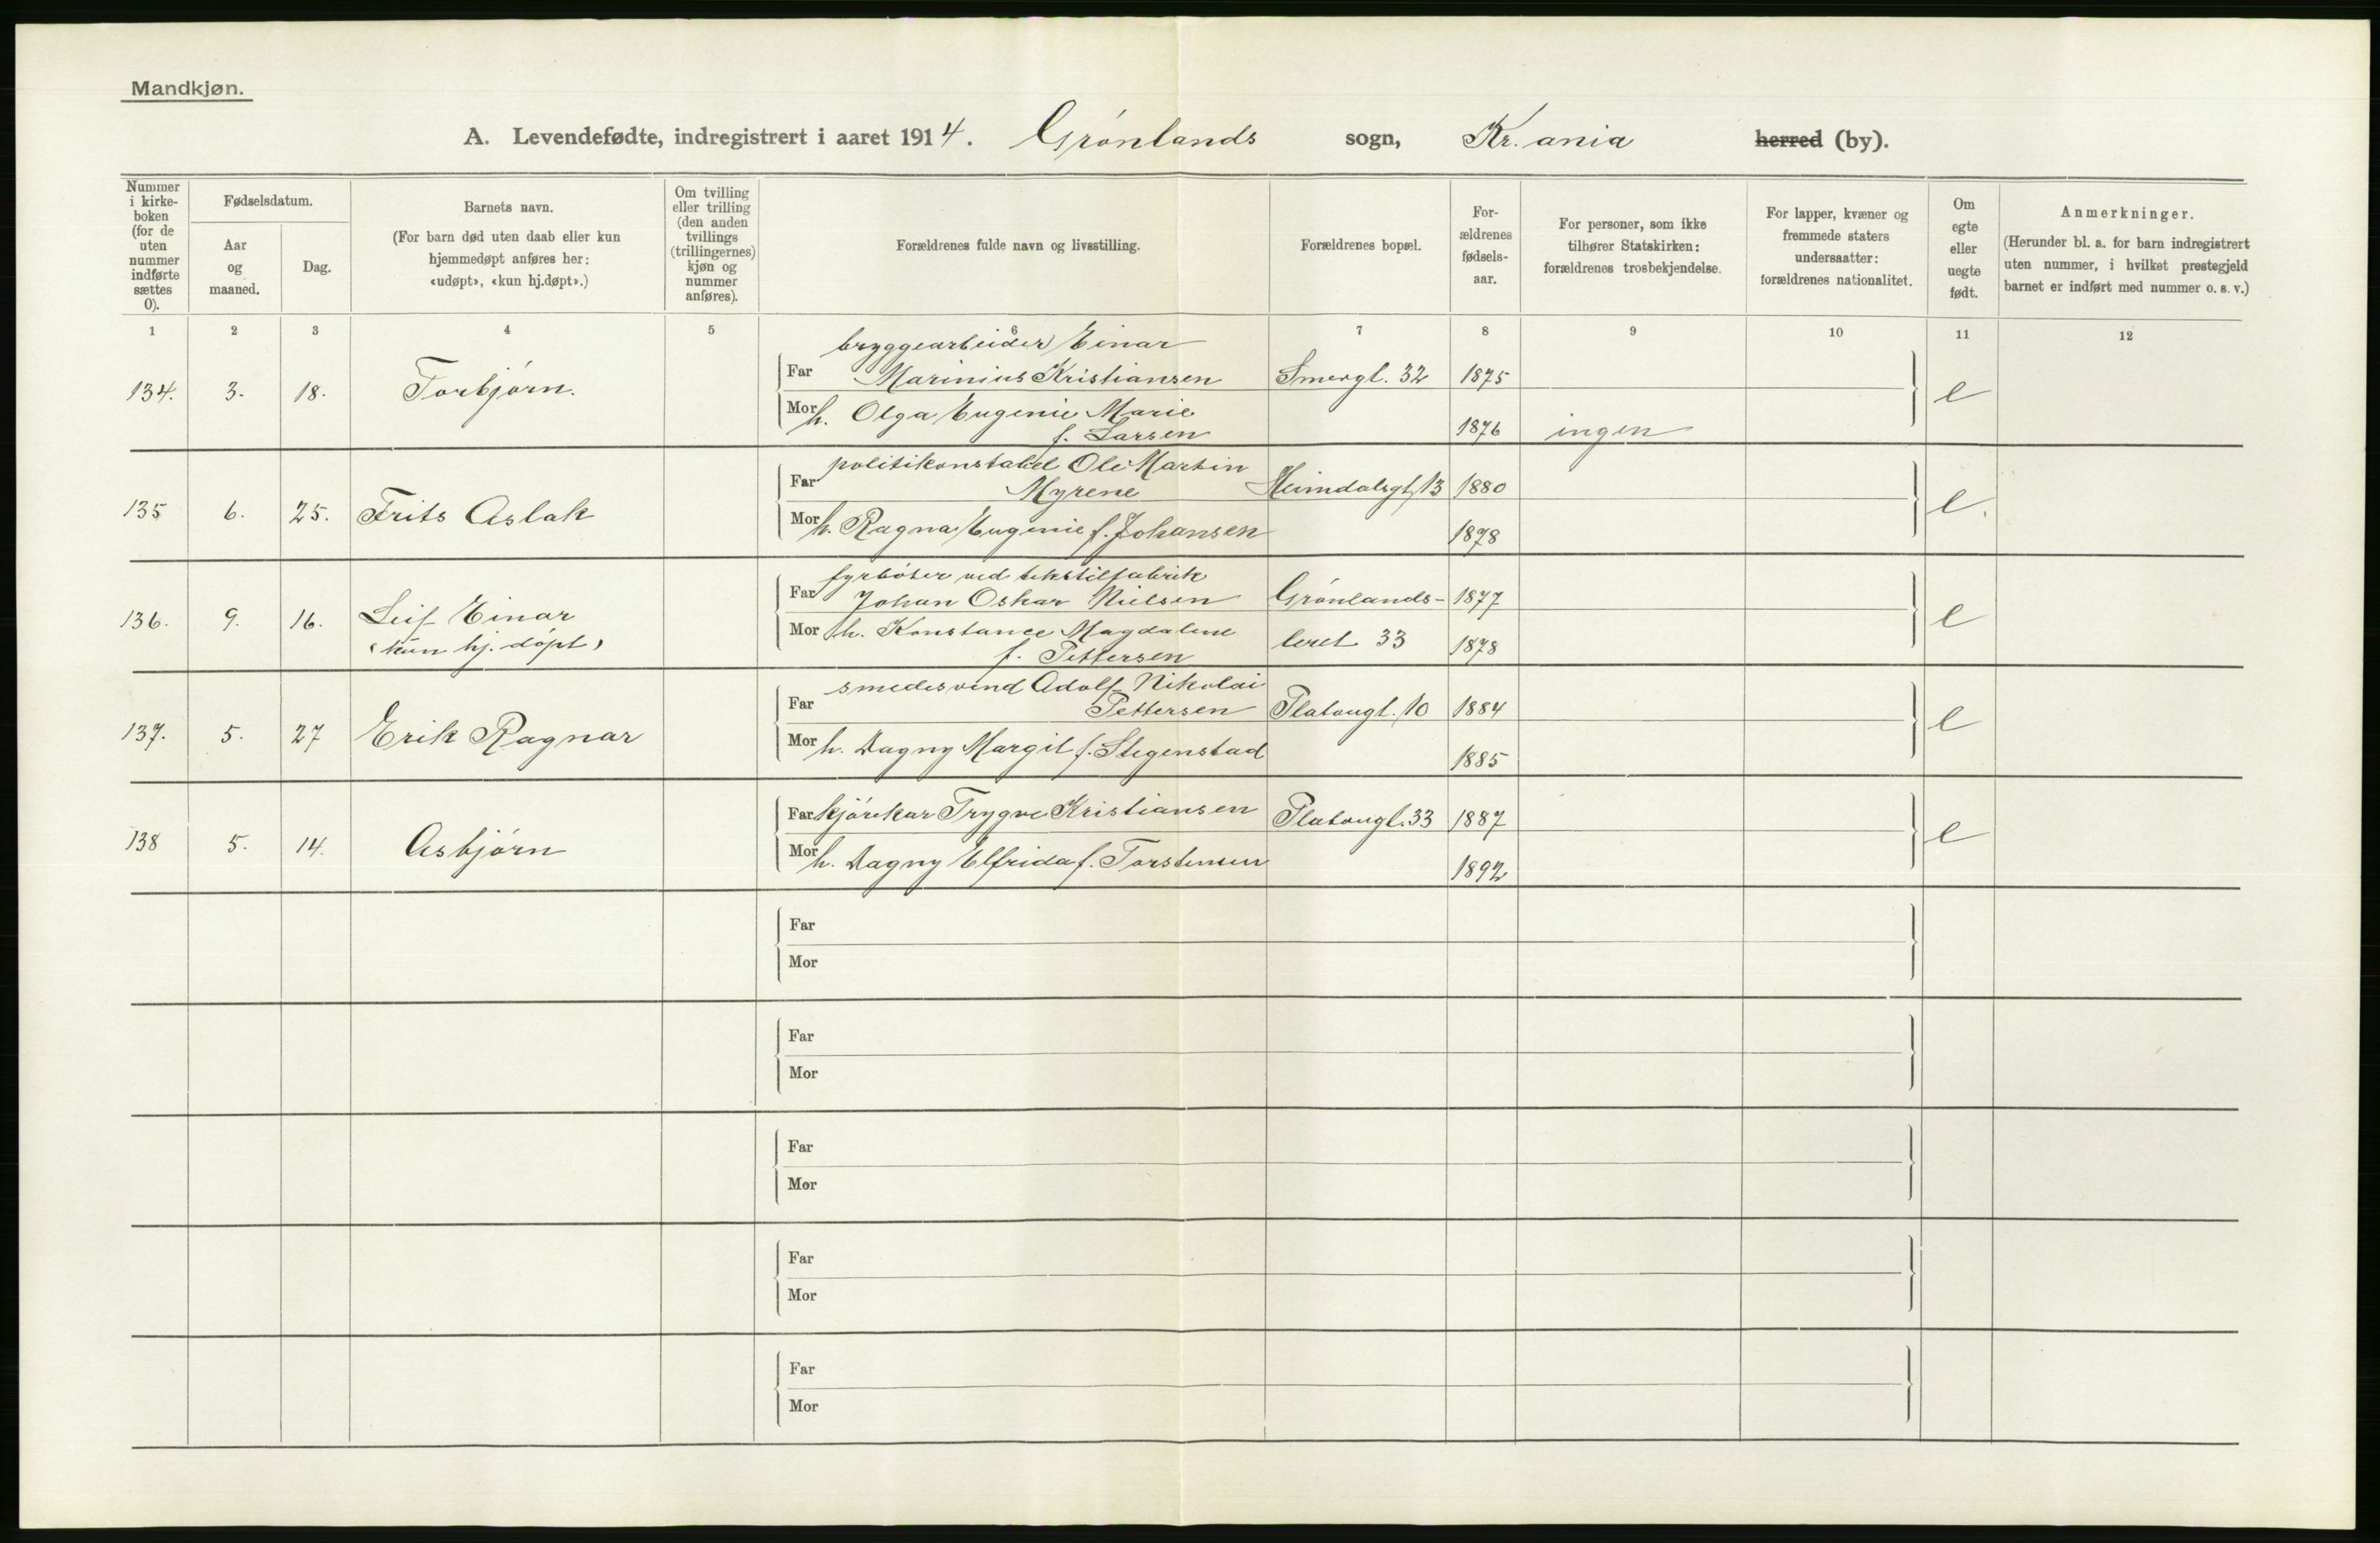 Mandkjøn.
A. Levendefødte, indregistrert i aaret 1914. Grønlands sogn, Kr.ania herred (by).
Nummer i kirke-boken (for de uten nummer indførte sættes 0).
Fødselsdatum.
Aar og maaned.
Dag.
Barnets navn.
(For barn død uten daab eller kun
hjemmedøpt anføres her:
«udøpt», «kun hj.døpt».)
Om tvilling
eller trilling
(den anden
tvillings
(trillingernes)
kjøn og
nummer
anføres).
Forældrenes fulde navn og livsstilling.
Forældrenes bopæl.
For-
ældrenes
fødsels-
aar.
For personer, som ikke
tilhører Statskirken:
forældrenes trosbekjendelse.
For lapper, kvæner og
fremmede staters
undersaatter:
forældrenes nationalitet.
Om
egte
eller
uegte
født.
Anmerkninger.
(Herunder bl. a. for barn indregistrert
uten nummer, i hvilket prestegjeld
barnet er indført med nummer o. s. v.)
1 2 3 4 5 6 7 8 9 10 11 12
bryggearbeider Einar
134. 3. 18. Torbjørn. Far Marinius Kristiansen Smergt. 32 1875 e
Mor h. Olga Eugenie Marie
f. Larsen 1876 ingen
politikonstabel Ole Martin
135 6. 25. Frits Aslak Far Myrene Heimdalsgt. 13 1880 e.
Mor h. Ragna Eugenie f. Johansen 1878
fyrbøter ved tekstilfabrik
136. 9. 16. Leif Einar Far Johan Oskar Nielsen Grønlands- 1877 e
«kun hj. døpt» Mor h. Konstance Magdalene leret 33 1878
f. Pettersen
smedesvend Adolf Nikolai
137. 5. 27 Erik Ragnar Far Pettersen Platougt. 10 1884 e
Mor h. Dagny Margit f. Stegenstad 1885
138 5. 14. Asbjørn Far kjørekar Trygve Kristiansen Platougt. 33 1887 e
Mor h. Dagny Elfrida f. Torstensen 1892
Far
Mor
Far
Mor
Far
Mor
Far
Mor
Far
Mor